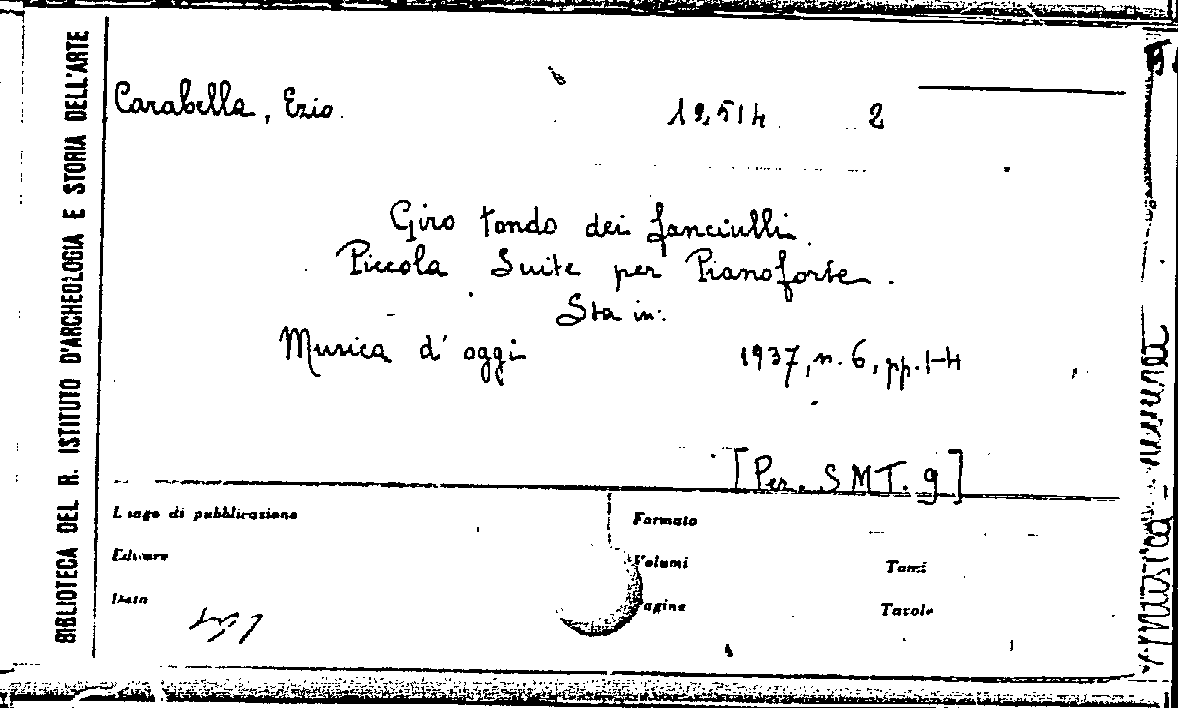 BIBLIOTECA DEL R. ISTITUTO D'ARCHEOLOGIA E STORIA DELL'ARTE
Carabella, Ezio.
19514 2
Giro tondo dei fanciulli.
Piccola Suite per Pianoforte.
Sta in:
Musica d'oggi 1937, n. 6, pp. 1-4
[Per. SMT. 9]
Luogo di pubblicazione
Formato
Editore
Volumi Tomi
Data
Pagine Tavole
Musica -